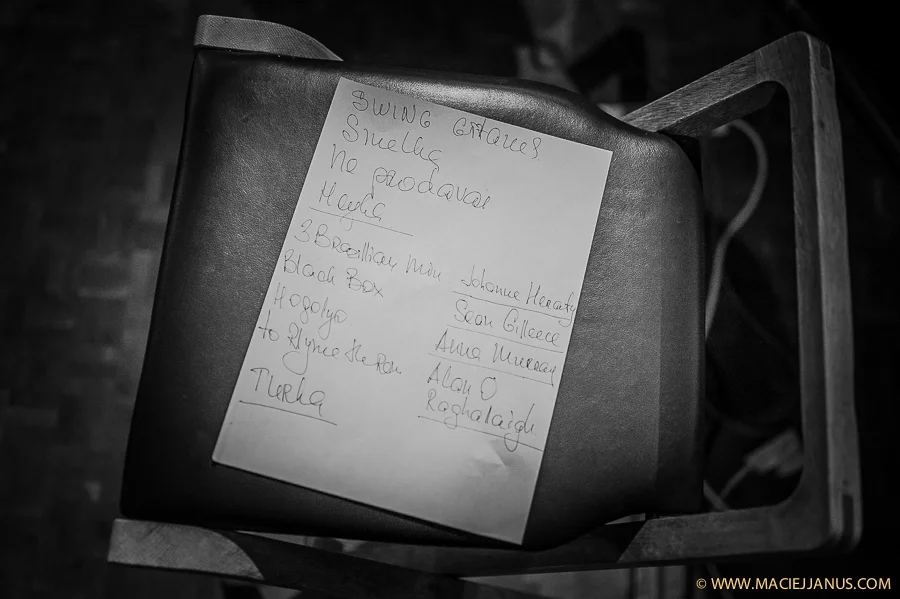 SWING GITANES
Smelka
Ne prodavai
Hayka
3 Brazillian Min
Black Box
Hogolyo
to Rhyme the Ron
TURKA
Johanne Heraty
Sean Gilleece
Anna Murray
Alan O
Raghalaigh
© WWW.MACIEJJANUS.COM